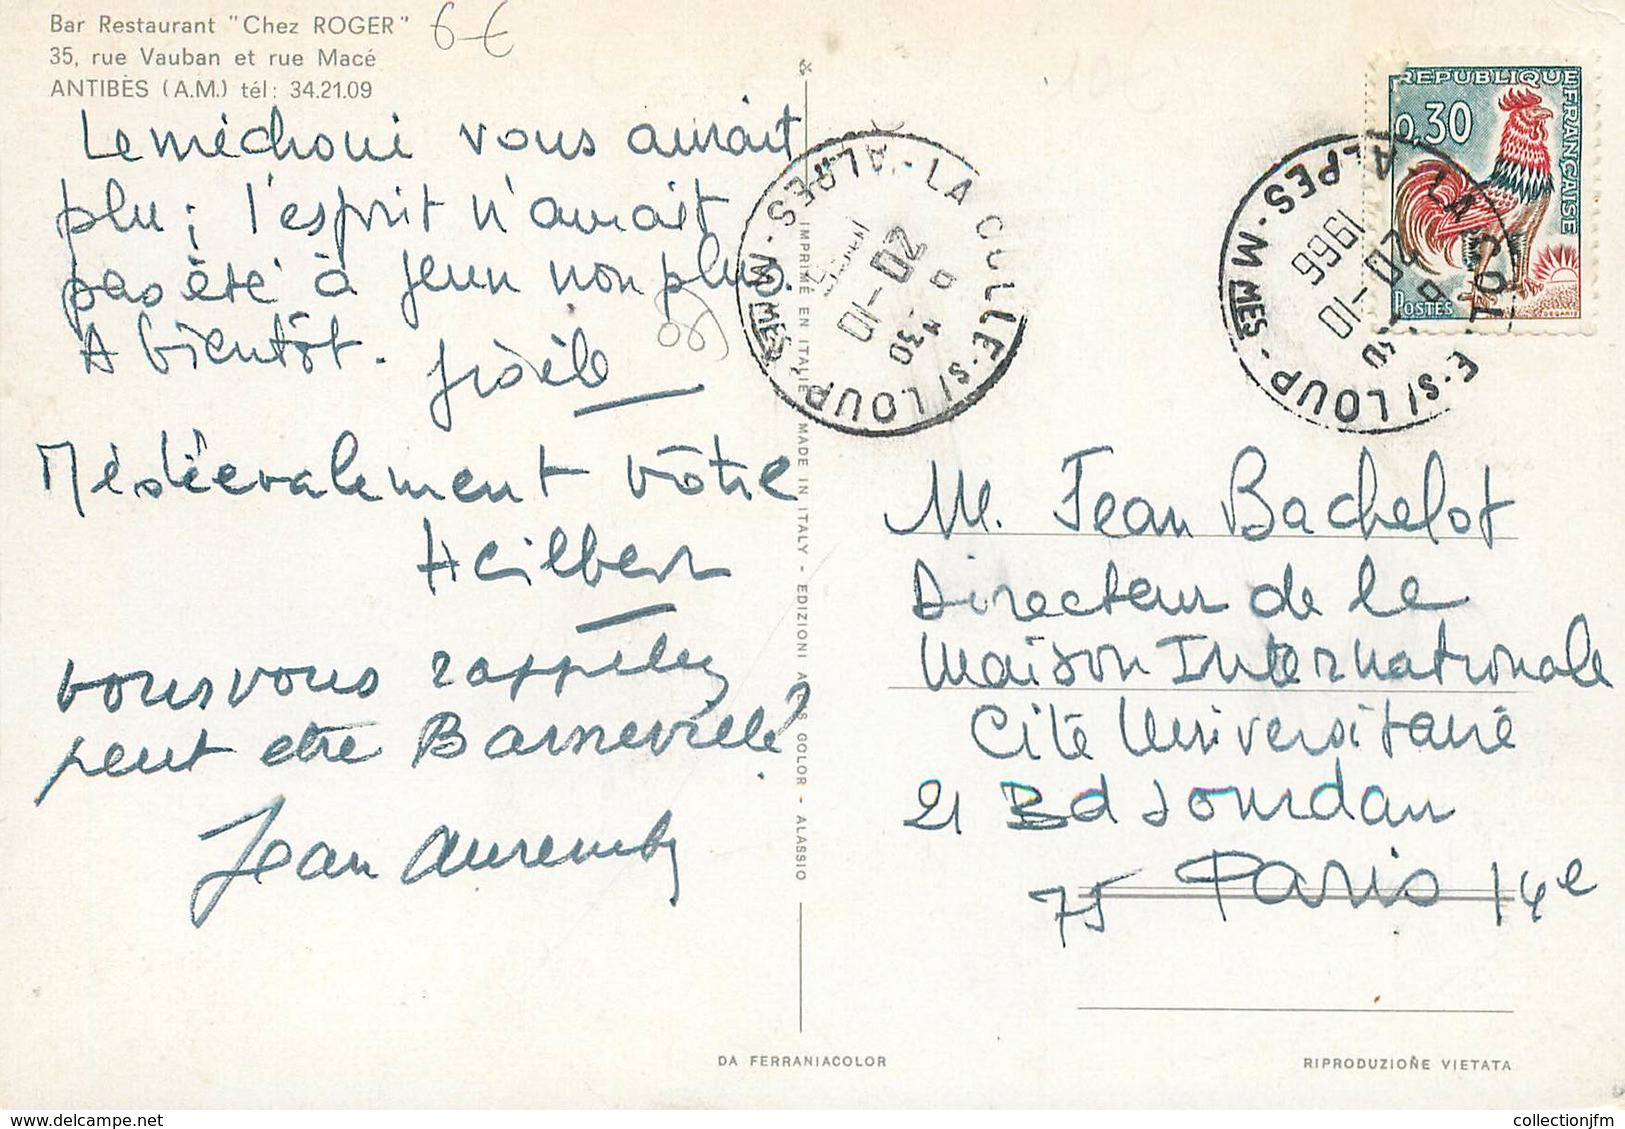 Bar Restaurant "Chez ROGER"
35, rue Vauban et rue Macé
ANTIBES (A.M.) tél: 34.21.09
6 €
Le méchoui vous aurait
plu; l'esprit n'aurait
pas été à jeun non plus.
A bientôt.
Médiévalement vôtre
Heilbern
vous vous rappelez
peut etre Barneville?
Jean
IMPRIMÉ EN ITALIE - MADE IN ITALY - EDIZIONI ALDS COLOR - ALASSIO
LA COLLE-S/LOUP - ALPES-MMES
9 H 30
20-10
LA COLLE-S/LOUP - ALPES-MMES
20-10
1966
REPUBLIQUE FRANÇAISE
0,30
POSTES
DECARIS
M. Jean Bachelot
Directeur de la
Maison Internationale
Cité Universitaire
21 Bd Jourdan
75 Paris 14e
DA FERRANIACOLOR
RIPRODUZIONE VIETATA
collectionjfm